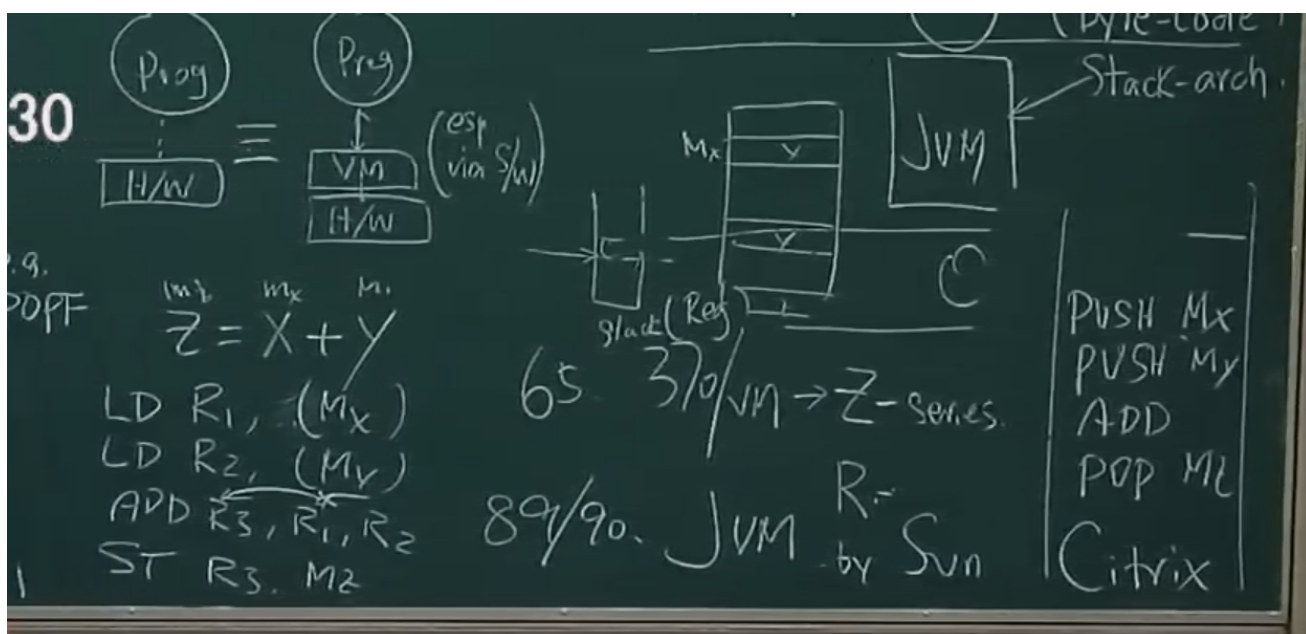 Prog
H/W
≡
Prog
VM
H/W
(esp
via S/W)
30
(byte-code
Stack-arch.
JVM
Mx
Y
Y
Stack (Reg)
C
POPF
mz mx
Z = X + Y
LD R1, (Mx)
LD R2, (My)
ADD R3, R1, R2
ST R3, Mz
65 370/VM → Z-series.
89/90. JVM by Sun
R-
PUSH Mx
PUSH My
ADD
POP Mz
Citrix